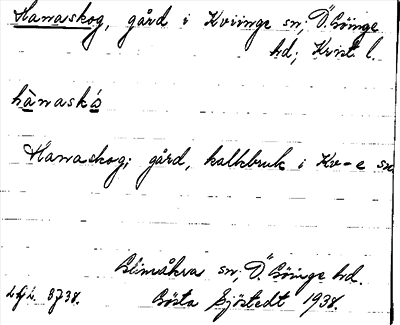 Hanaskog, gård i Kviinge sn; Ö. Göinge
hd; Krist. l.
hànaskó
Hanaskog; gård, kalkbruk i Kv-e sn.
Glimåkra sn, Ö. Göinge hd.
Gösta Sjöstedt 1938.